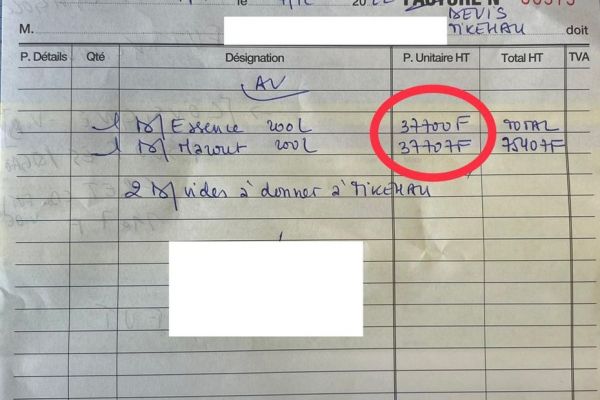 le 20
FACTURE N°
DEVIS
M. TIKEHAU doit
P. Détails Qté Désignation P. Unitaire HT Total HT TVA
AV
1 Essence 200L 37700F TOTAL
1 Mazout 200L 37707F 75407F
2 vides à donner à TIKEHAU